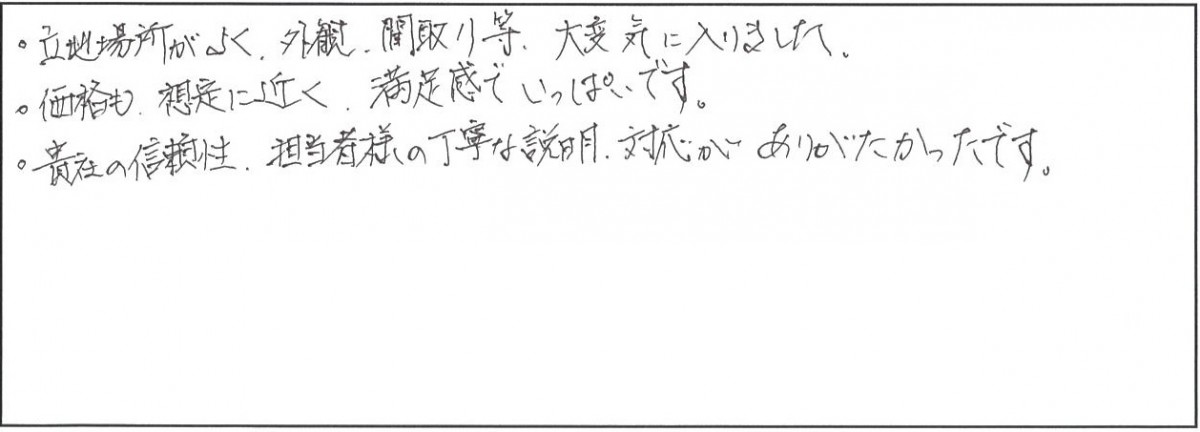 。立地場所がよく、外観、間取り等、大変気に入りました。
。価格も、想定に近く、満足感でいっぱいです。
。貴社の信頼性、担当者様の丁寧な説明、対応が ありがたかったです。